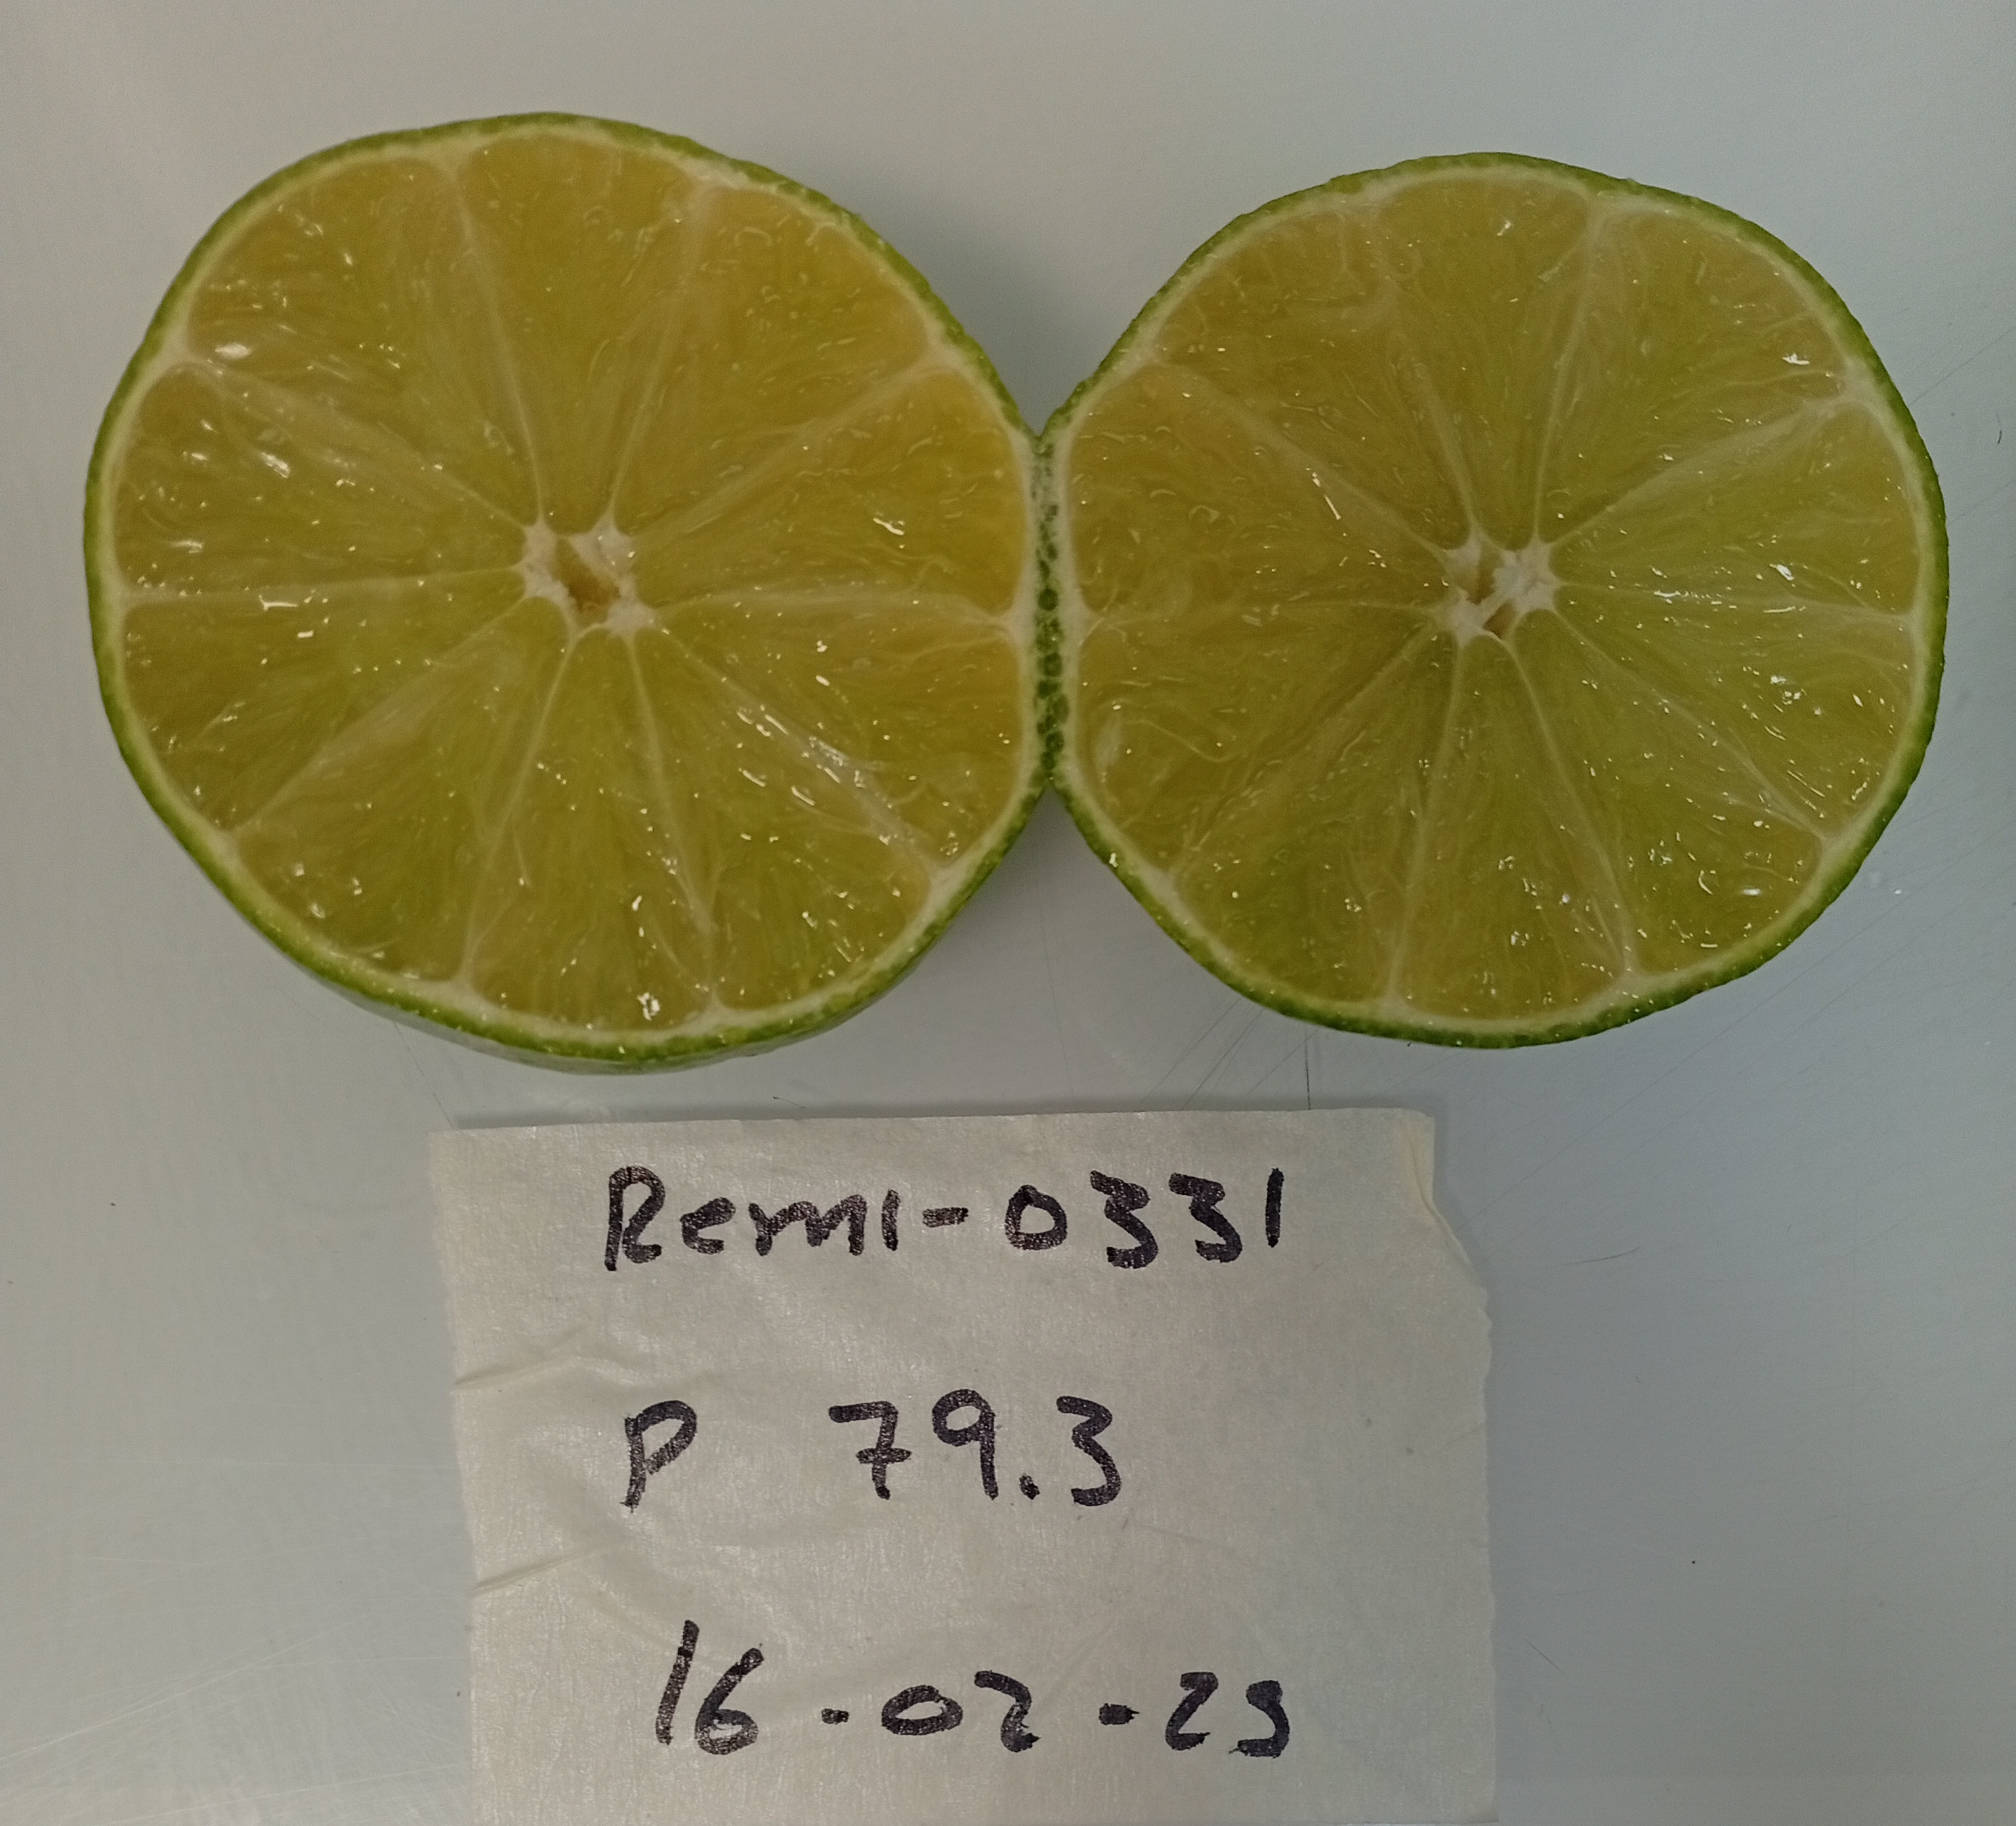 Remi-0331
P 79.3
16-02-23